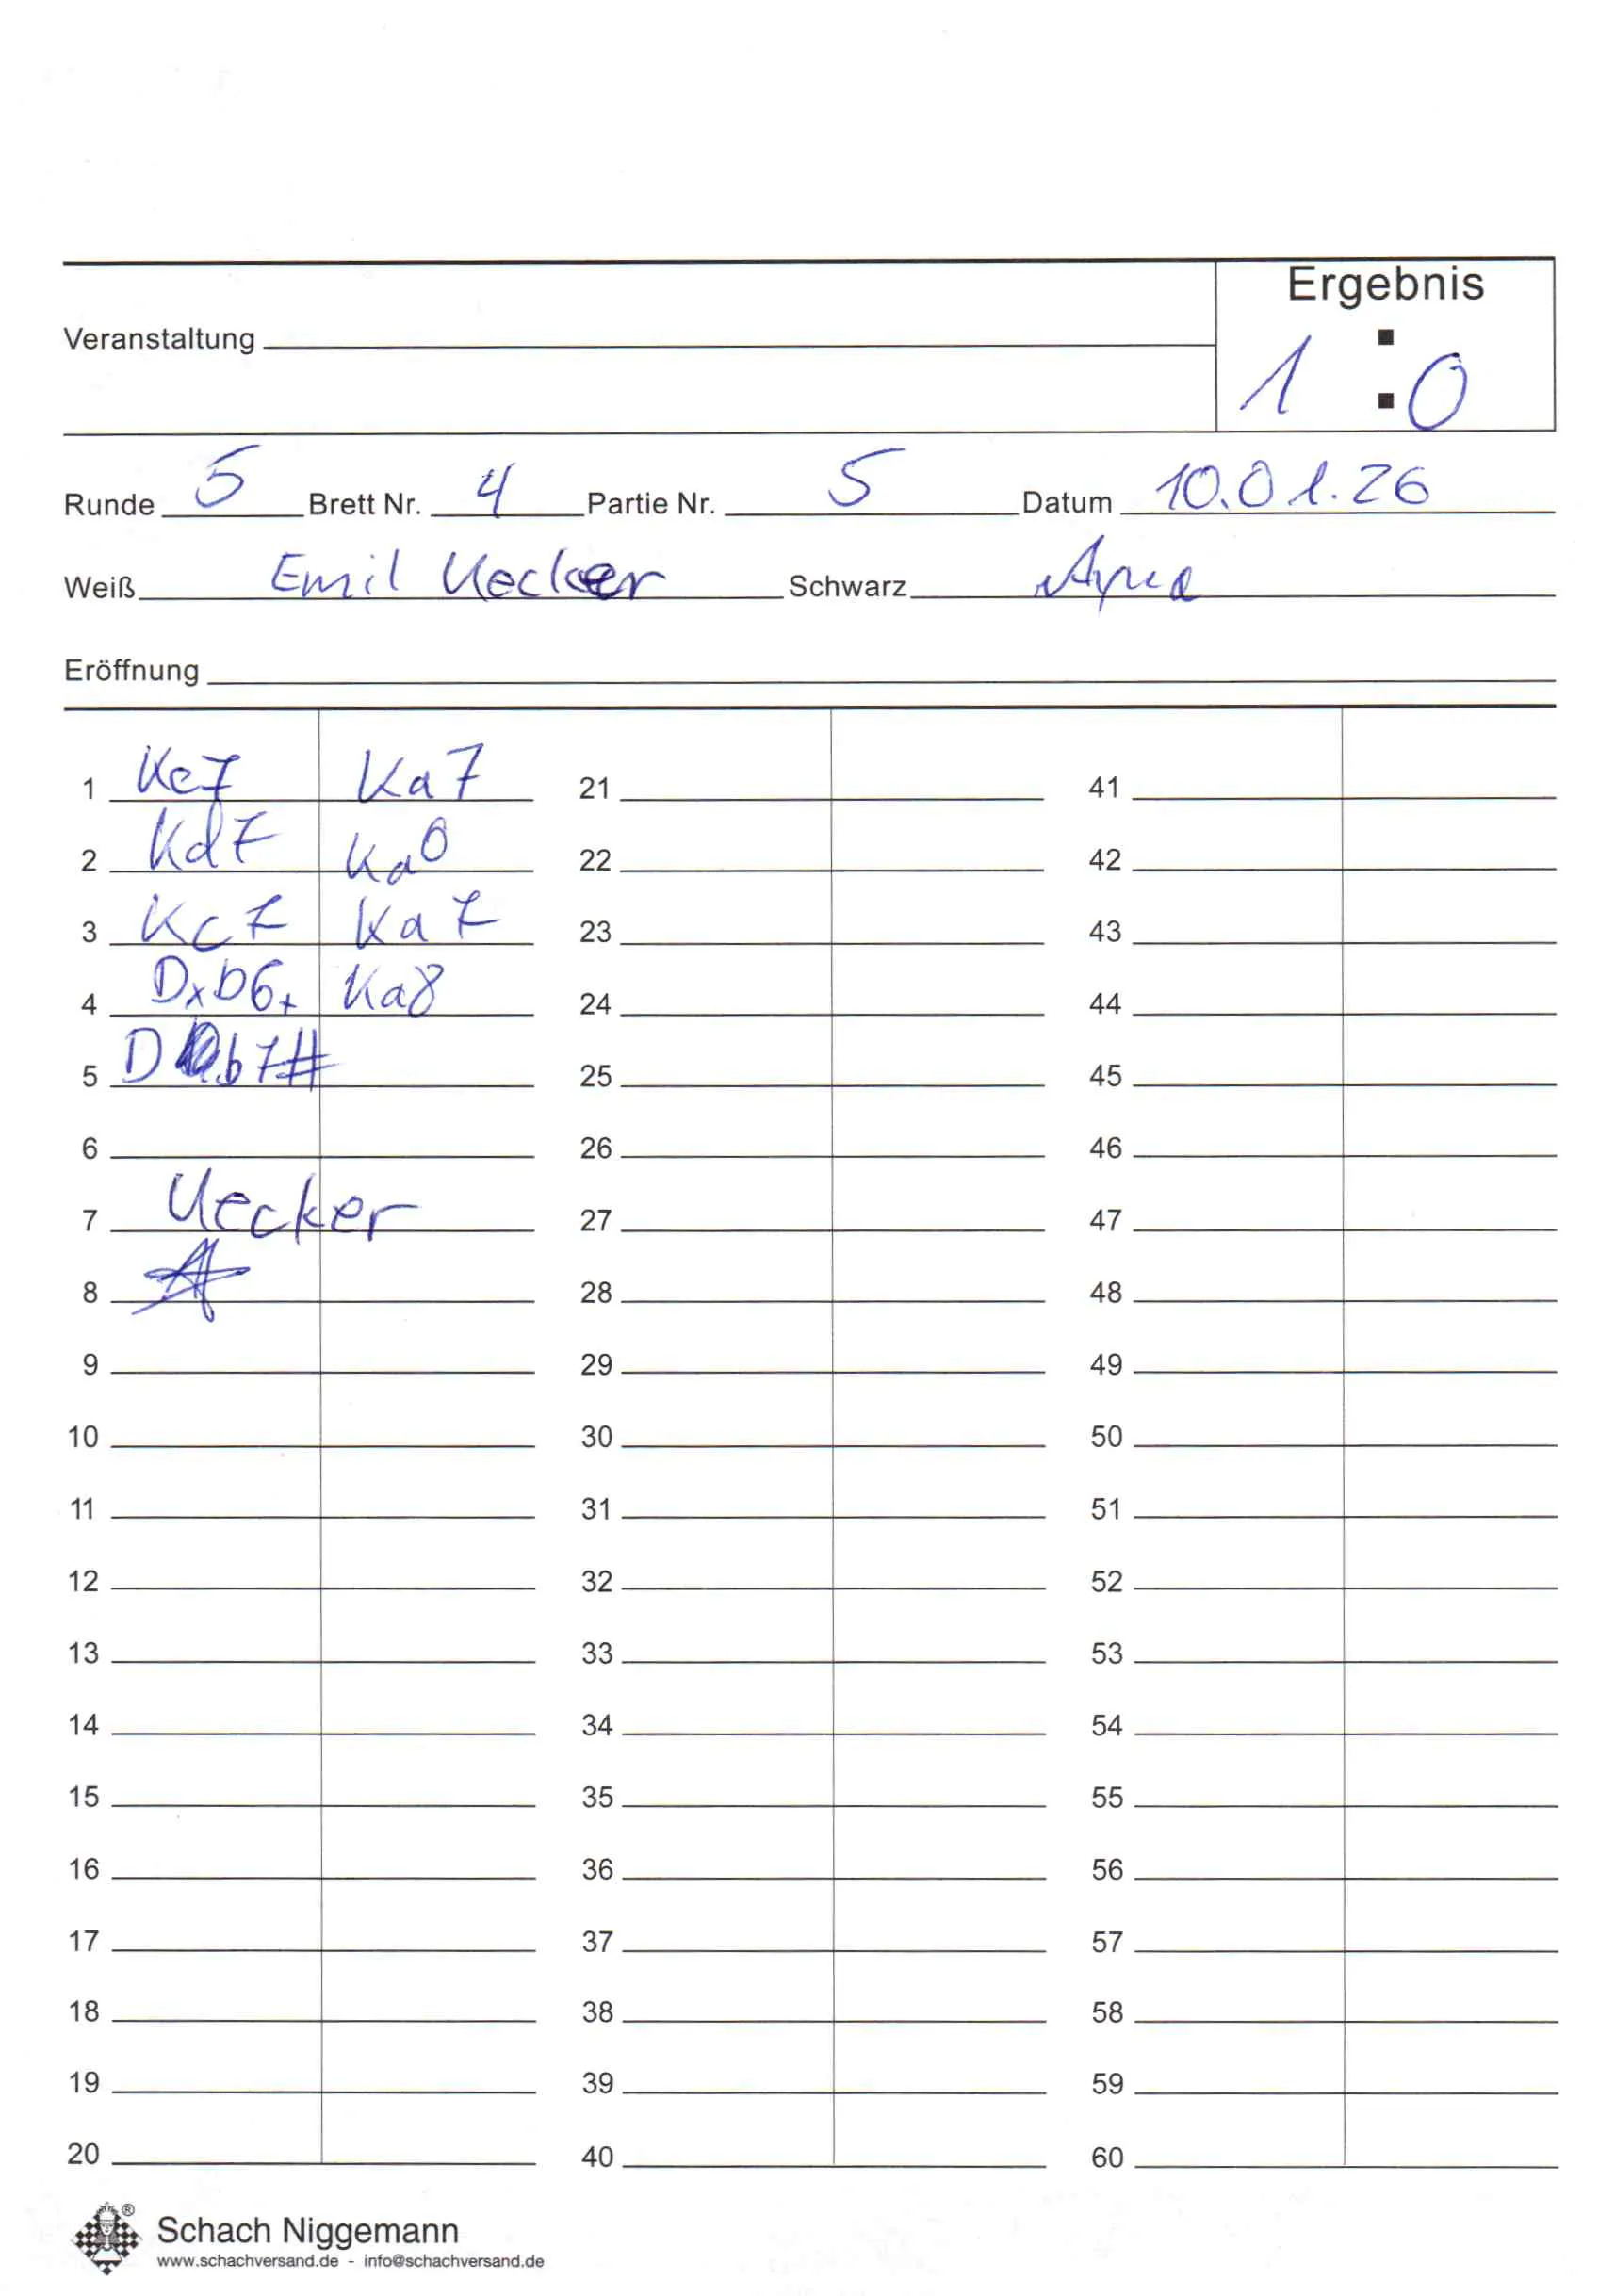 Ergebnis
Veranstaltung
1 : 0
Runde 5 Brett Nr. 4 Partie Nr. 5 Datum 10.01.26
Weiß Emil Uecker Schwarz
Eröffnung
1 Kc7 Ka7 21 41
2 Kd7 Ka8 22 42
3 Kc7 Ka7 23 43
4 Dxb6+ Ka8 24 44
5 Db7# 25 45
6 26 46
7 Uecker 27 47
8 28 48
9 29 49
10 30 50
11 31 51
12 32 52
13 33 53
14 34 54
15 35 55
16 36 56
17 37 57
18 38 58
19 39 59
20 40 60
® Schach Niggemann
www.schachversand.de - info@schachversand.de